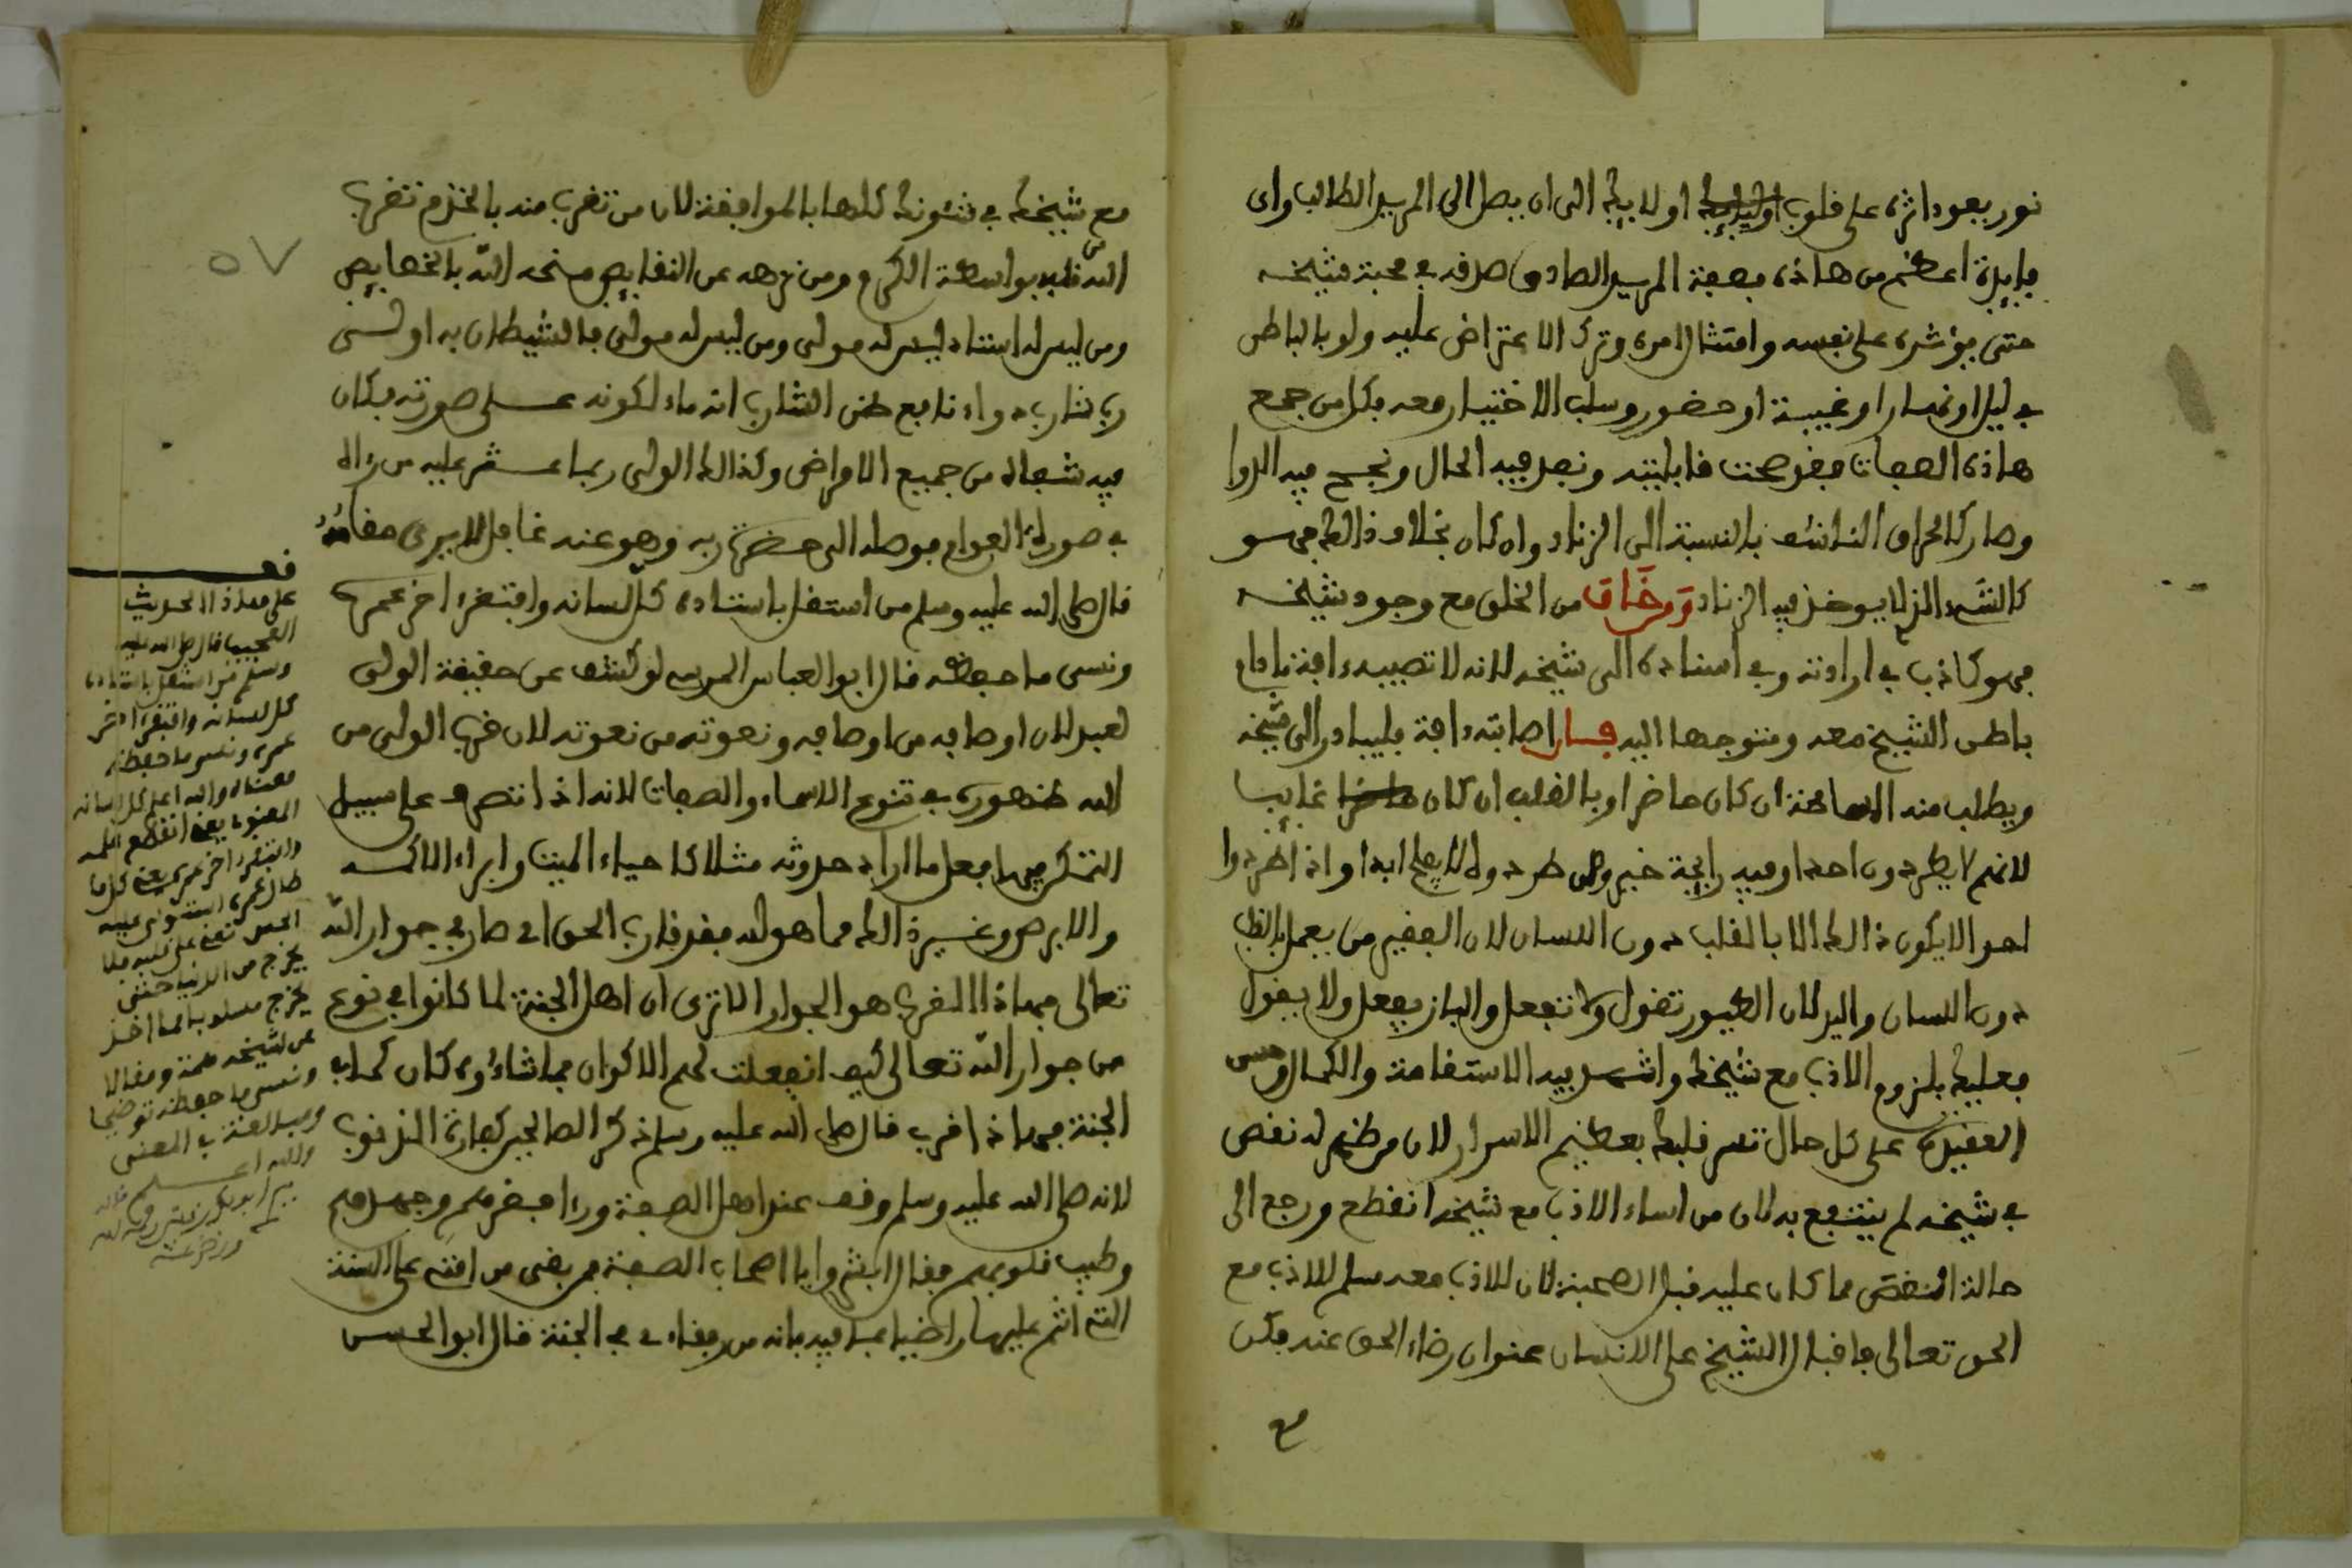 نور يعود اثره على قلوب اولايك الى ان يصل الى المريد الطالب واى
فايدة اعظم من هاذه بصفة المريد الصادق صدقه في محبة شيخه
حتى يؤثره على نفسه وامتثال امره وترك الاعتراض عليه ولو بالباطن
في ليل او نهار او غيبة او حضور وسلب الاختيار معه فكل من جمع
هاذه الصفات فقد صحت قابليته ونفد فيه الحال ونجح فيه الدوا
وصار كالحراق الناشف بالنسبة الى الزناد وان كان بخلاف ذالك فهو
كالشىء الذى لا يوخذ فيه الزناد ومن خاف من الخلق مع وجود شيخه
فهو كاذب في ارادته وفي استناده الى شيخه لانه لا تصيبه ءافة مادام
باطن الشيخ معه ومتوجها اليه فان اصابته ءافة فليبادر الى شيخه
ويطلب منه المسامحة ان كان حاضرا وبالقلب ان كان غايبا
لانهم لا يطردون احدا وفيه رايحة خير ومن طردوه لا يفلح ابدا واذا طردوا
احدا لا يكون ذالك الا بالقلب دون اللسان لان الفقير من يعمل بالقلب
دون اللسان واليد لان الطيور تقول ولا تفعل والباز يفعل ولا يقول
فعليك بلزوم الادب مع شيخك واشهد فيه الاستقامة والكمال وحسن
العقيدة على كل حال تسر قلبك بعظيم الاسرار لان من ظهر له نقص
في شيخه لم ينتفع به لان من اساء الادب مع شيخه انقطع ورجع الى
حالة انقص مما كان عليه قبل الصحبة لان الادب معه سلم للادب مع
الحق تعالى فاقبال الشيخ على الانسان عنوان رضاء الحق عنه فكن
مع
مع شيخك في شئونك كلها بالموافقة لان من تقرب منه بالخدم تقرب
الله من قلبه بواسطة الكرم ومن نزهه عن النقايص منحه الله بالخصايص
ومن ليس له استاد ليس له مولى ومن ليس له مولى فالشيطان به اولى
رب شارب دواء نافع ظن الشارب انه ماء لكونه على صورته فكان
فيه شفاؤه من جميع الامراض وكذالك الولى ربما عثر عليه من رءاه
في صورة العوام فوصله الى حضرة ربه وهو عنه غافل لا يرى مقامه
قال صلى الله عليه وسلم من استقل باستاده كل لسانه وافتقر اخر عمره
ونسى ما حفظه قال ابو العباس المرسى لو كشف عن حقيقة الولى
لعبد لان اوصافه من اوصافه ونعوته من نعوته لان قرب الولى من
الله ظهوره في تنوع الاسماء والصفات لانه اذا انتصر على سبيل
التحكم فيها فعل ما اراد حدوثه مثلا كاحياء الميت وابراء الاكمه
والابرص وغير ذالك مما هو لله فقد قارب الحق اى صار في جوار الله
تعالى فهاذا القرب هو الجوار الا ترى ان اهل الجنة لما كانوا في نوع
من جوار الله تعالى كيف انفعلت لهم الاكوان فما شاءوه كان كما في
الجنة فهاذا قرب قال صلى الله عليه وسلم ذكر الصالحين كفارة الذنوب
لانه صلى الله عليه وسلم وقف عند اهل الصفة وراء فقرهم وجهدهم
وطيب قلوبهم فقال ابشروا يا اصحاب الصفة فمن بقى من امتى على السنة
التى انتم عليها راضيا بما فيه فانه من رفقاءى في الجنة قال ابو الحسن
٥٧
قف
على معاذ الحديث
العجيب قال صلى الله عليه
وسلم من استقل باستاده
كل لسانه وافتقر اخر
عمره ونسى ما حفظه
معناه والله اعلم كل لسانه
المعنوى يعنى انقطع
وافتقر اخر عمره يعنى كل ما
طال عمره استولى عليه
فلا
يخرج من الدنيا حتى
يخرج مسلوبا لما اخذ
عن شيخه همة ومقالا
ونسى ما حفظه توضيحا
ومبالغة في المعنى
والله اعلم